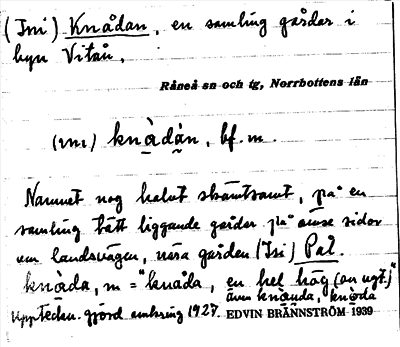 (Ini) Knådan, en samling gårdar i
byn Vitån.
Råneå sn och tg, Norrbottens län
(ini) knàdàn, bf. m.
Namnet nog halvt skämtsamt, på en
samling tätt liggande gårdar på ömse sidor
om landsvägen, nära gården (Isi) Pal.
knàda, m = "knåda, en hel hög (av ngt.)"
även knånda, knòda
Uppteckn. gjord omkring 1927. EDVIN BRÄNNSTRÖM 1939